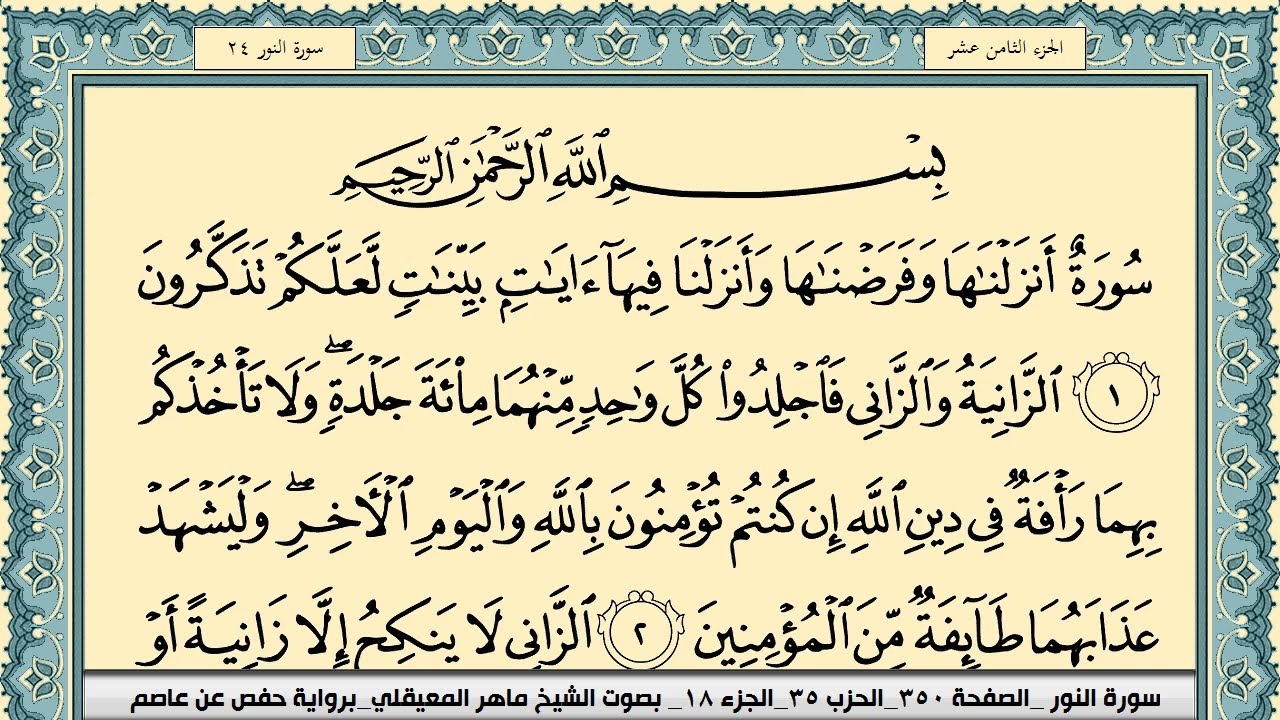 الجزء الثامن عشر
سورة النور ٢٤
بِسْمِ اللَّهِ الرَّحْمَٰنِ الرَّحِيمِ
سُورَةٌ أَنزَلْنَٰهَا وَفَرَضْنَٰهَا وَأَنزَلْنَا فِيهَآ ءَايَٰتٍۭ بَيِّنَٰتٍ لَّعَلَّكُمْ تَذَكَّرُونَ
١ ٱلزَّانِيَةُ وَٱلزَّانِى فَٱجْلِدُوا۟ كُلَّ وَٰحِدٍ مِّنْهُمَا مِا۟ئَةَ جَلْدَةٍ ۖ وَلَا تَأْخُذْكُم
بِهِمَا رَأْفَةٌ فِى دِينِ ٱللَّهِ إِن كُنتُمْ تُؤْمِنُونَ بِٱللَّهِ وَٱلْيَوْمِ ٱلْأَخِرِ ۖ وَلْيَشْهَدْ
عَذَابَهُمَا طَآئِفَةٌ مِّنَ ٱلْمُؤْمِنِينَ ٢ ٱلزَّانِى لَا يَنكِحُ إِلَّا زَانِيَةً أَوْ
سورة النور _الصفحة ٣٥٠_الحزب ٣٥_الجزء ١٨_ بصوت الشيخ ماهر المعيقلي_برواية حفص عن عاصم